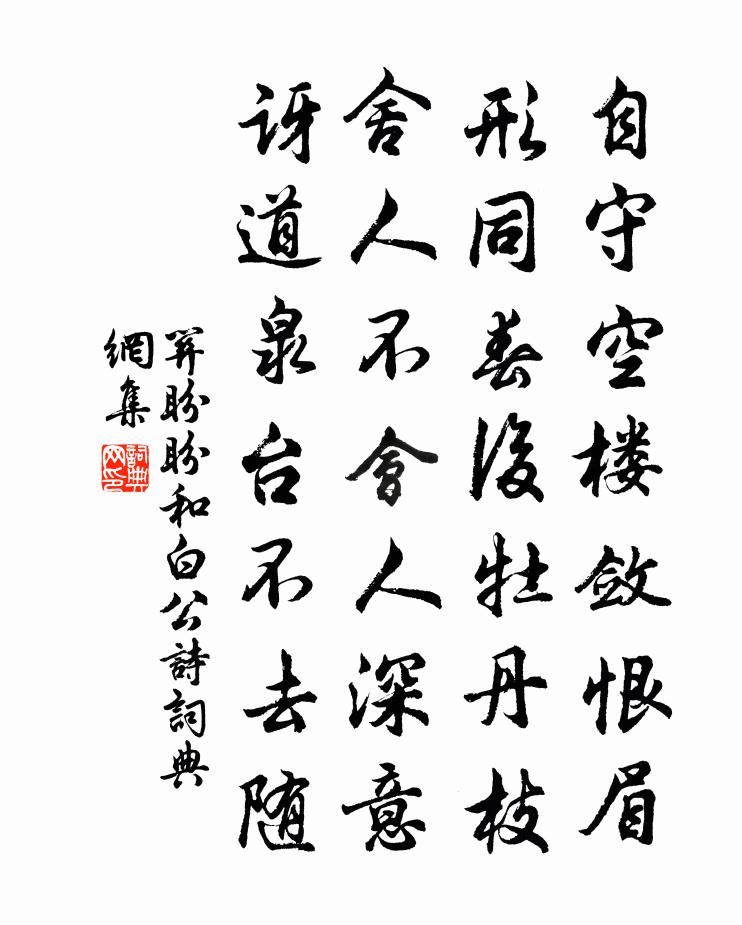 自守空楼敛恨眉
形同春後牡丹枝
舍人不會人深意
讶道泉台不去随
关盼盼和白公詩詞典
網集
詞典
网印